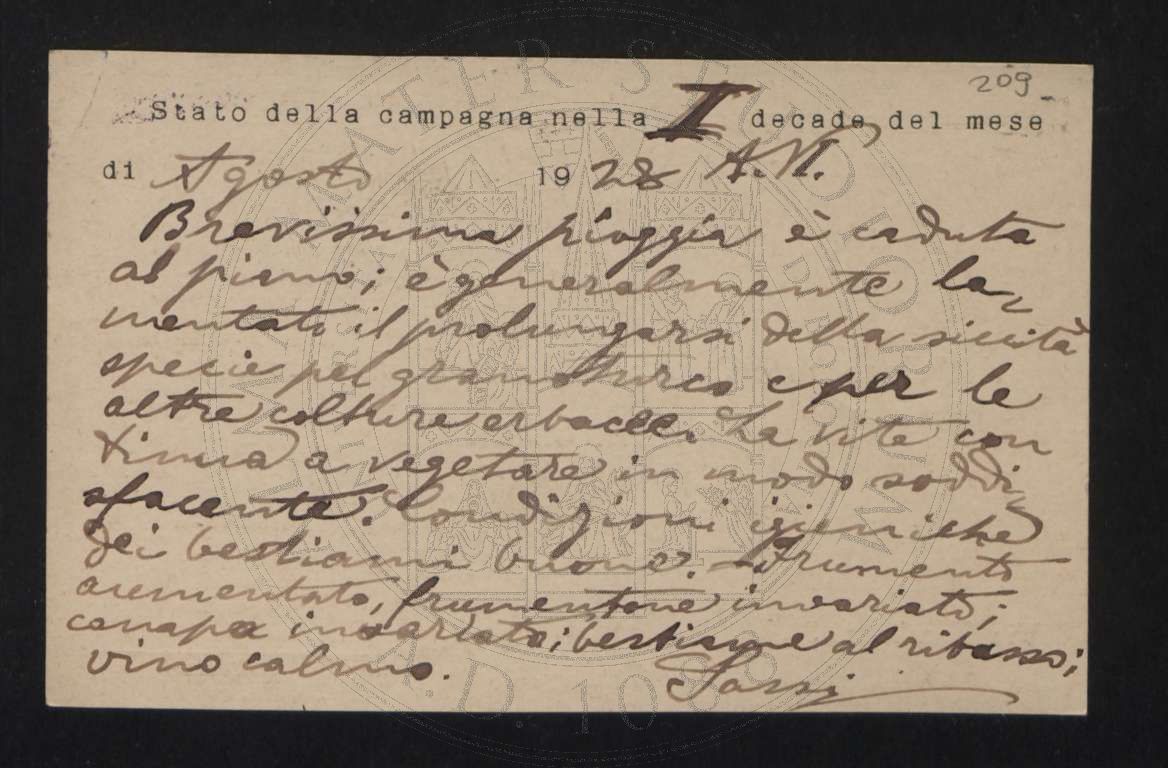 209
Stato della campagna nella I decade del mese
di Agosto 1928 A. VI.
Brevissima pioggia è caduta
al piano; è generalmente la-
mentato il prolungarsi della siccità
specie pel granoturco e per le
altre colture erbacee. La vite con
tinua a vegetare in modo soddi-
sfacente. Condizioni igieniche
dei bestiami buone. - Frumento
aumentato, frumentone invariato;
canapa invariata; bestiame al ribasso;
vino calmo.